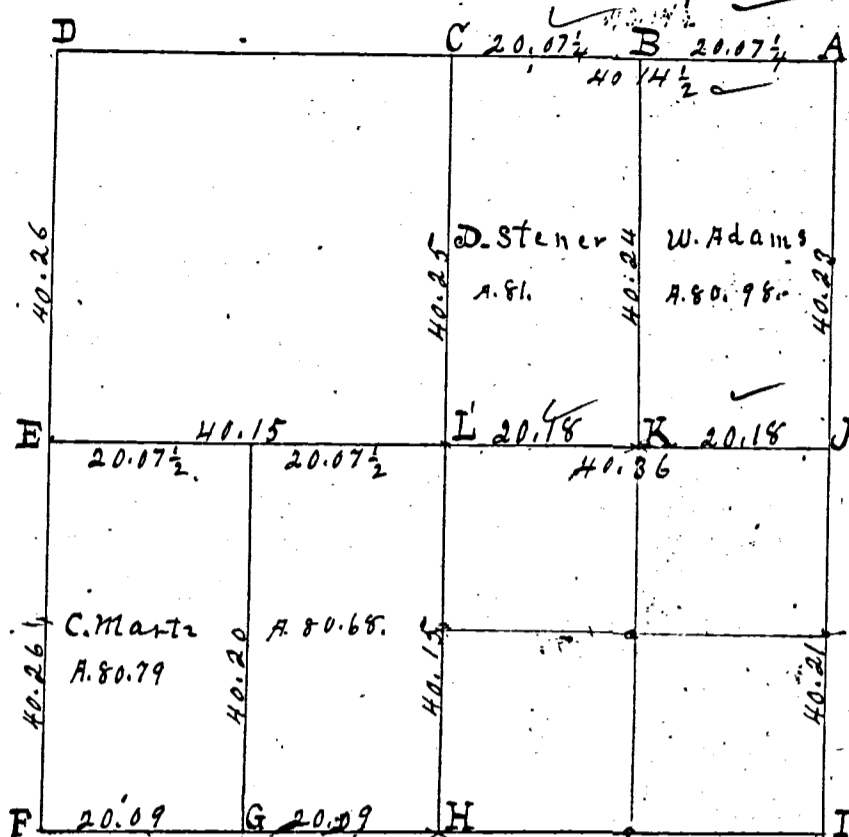 D C 20.07¼ B 20.07¼ A
40 14½
40.26
40.25
D. Stener
A.81.
40.24
W. Adams
A.80.98.
40.23
E 40.15 L 20.18 K 20.18 J
20.07½ 20.07½ 40.36
C. Martz
A.80.79
40.26½
40.20
A 80.68.
40.15
40.21
F 20.09 G 20.09 H I